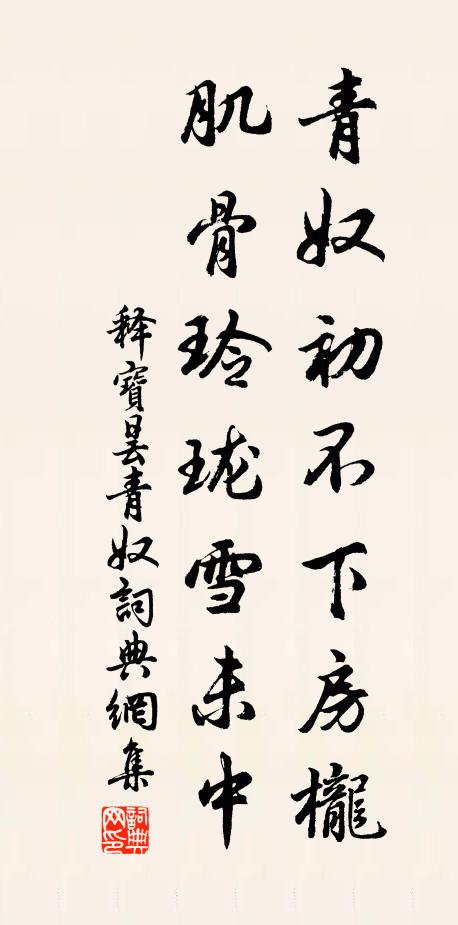 青奴初不下房櫳
肌骨玲珑雪未中
释寶曇青奴詞典網集
詞典网印